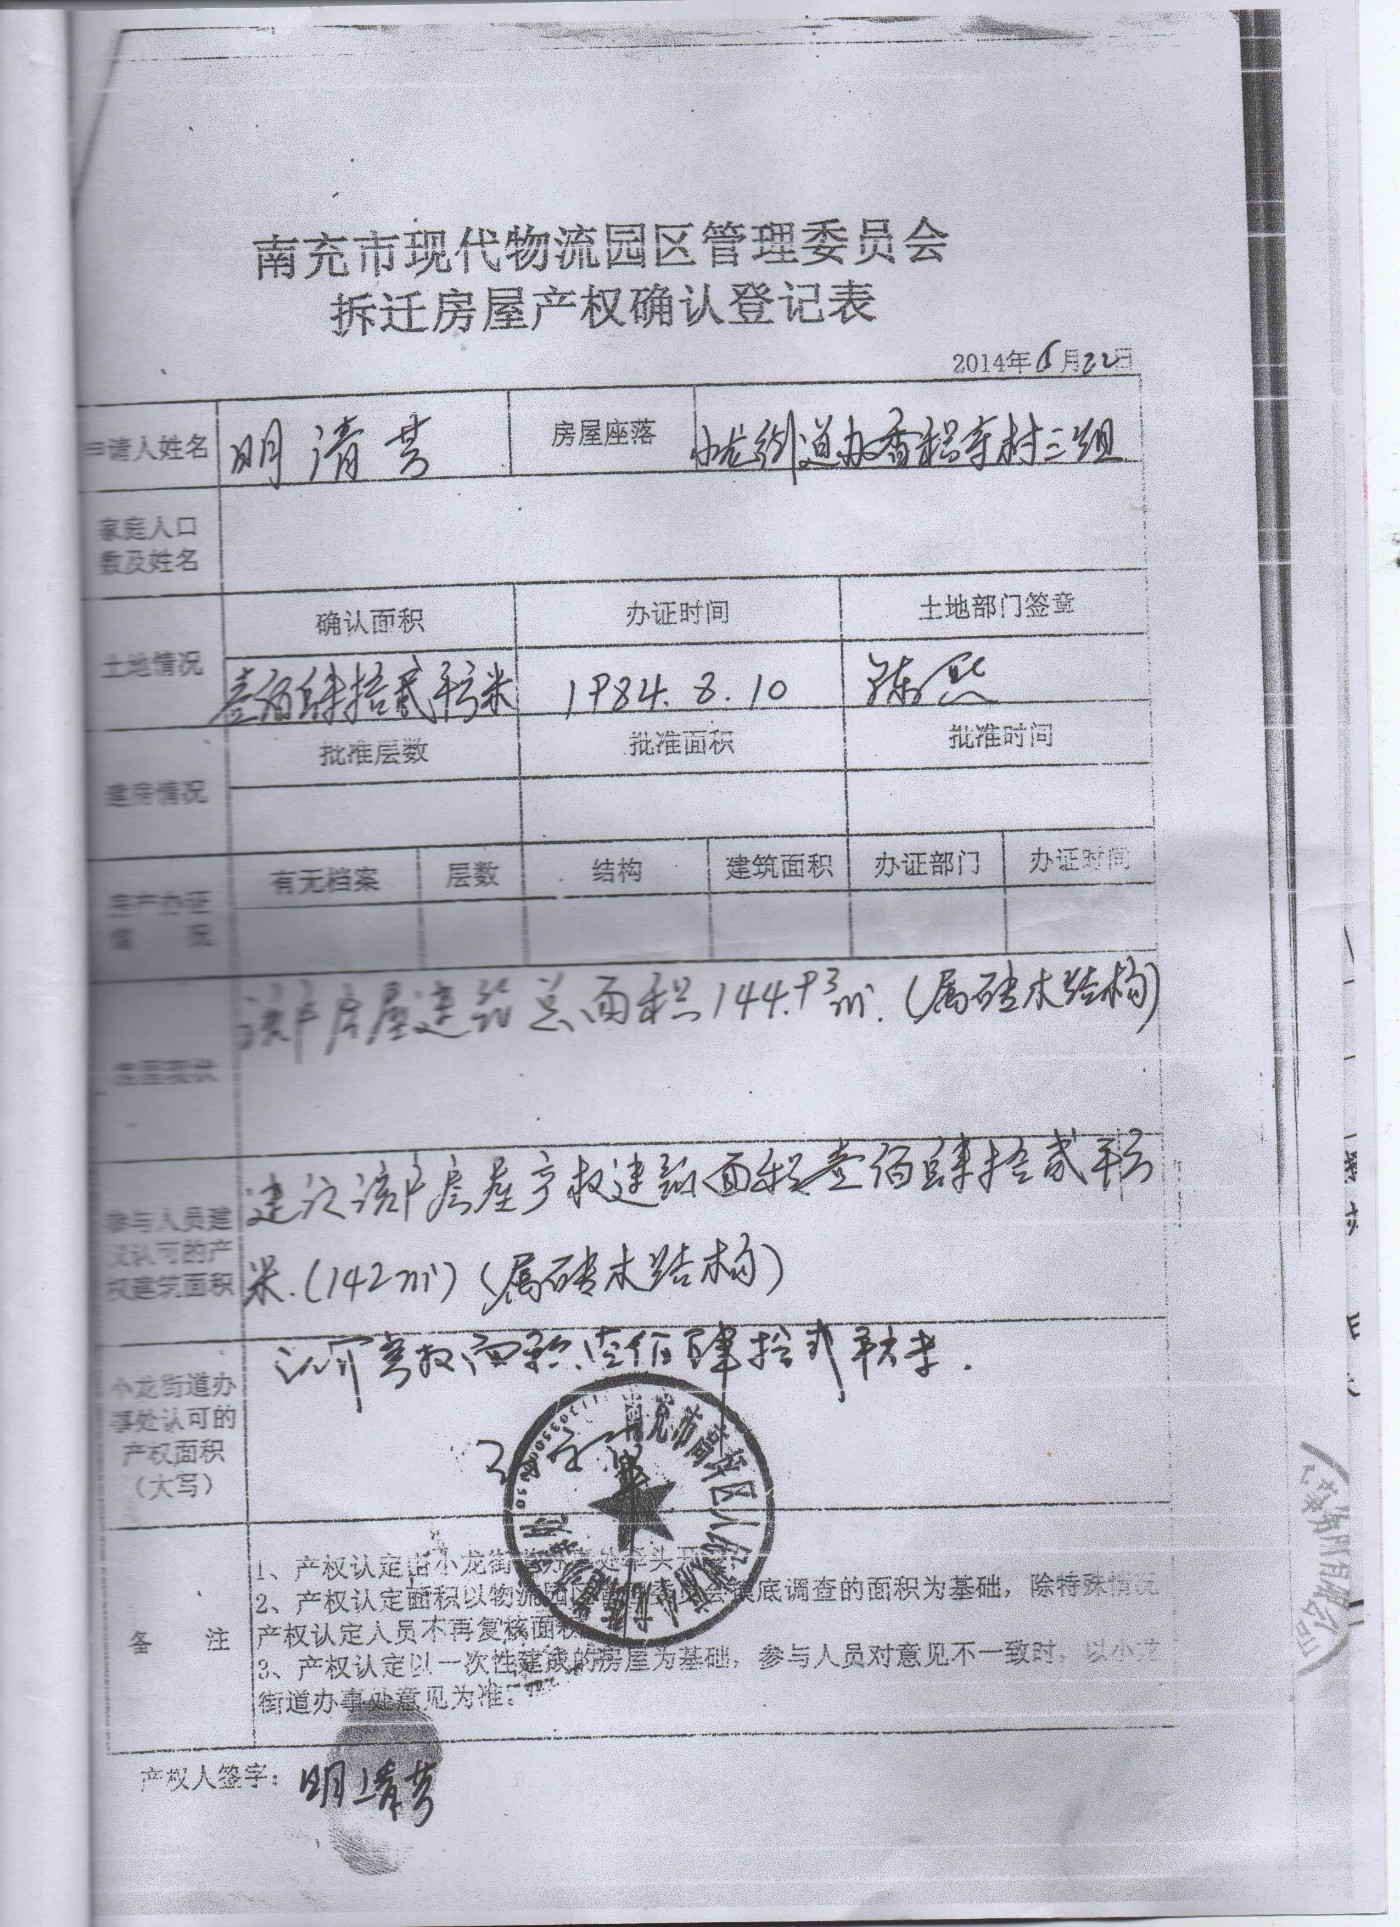 南充市现代物流园区管理委员会
拆迁房屋产权确认登记表
2014年6月22日
申请人姓名 明清芳 房屋座落 小龙街道办香稻寺村三组
家庭人口
数及姓名
土地情况 确认面积 办证时间 土地部门签章
壹佰肆拾贰平方米 1984.8.10 陈熙
建房情况 批准层数 批准面积 批准时间
房产办证
情 况 有无档案 层数 结构 建筑面积 办证部门 办证时间
房屋现状 该户房屋建筑总面积144.93㎡.(属砖木结构)
参与人员建
议认可的产
权建筑面积
建议该户房屋产权建筑面积壹佰肆拾贰平方
米.(142㎡)(属砖木结构)
小龙街道办
事处认可的
产权面积
(大写)
认可产权面积壹佰肆拾贰平方米.
南充市高坪区人民政府 办事处
备 注
1、产权认定由小龙街道办事处牵头
2、产权认定面积以物流园区管理委员会摸底调查的面积为基础，除特殊情况
产权认定人员不再复核面积
3、产权认定以一次性建成的房屋为基础，参与人员对意见不一致时，以小龙
街道办事处意见为准。
产权人签字：明清芳